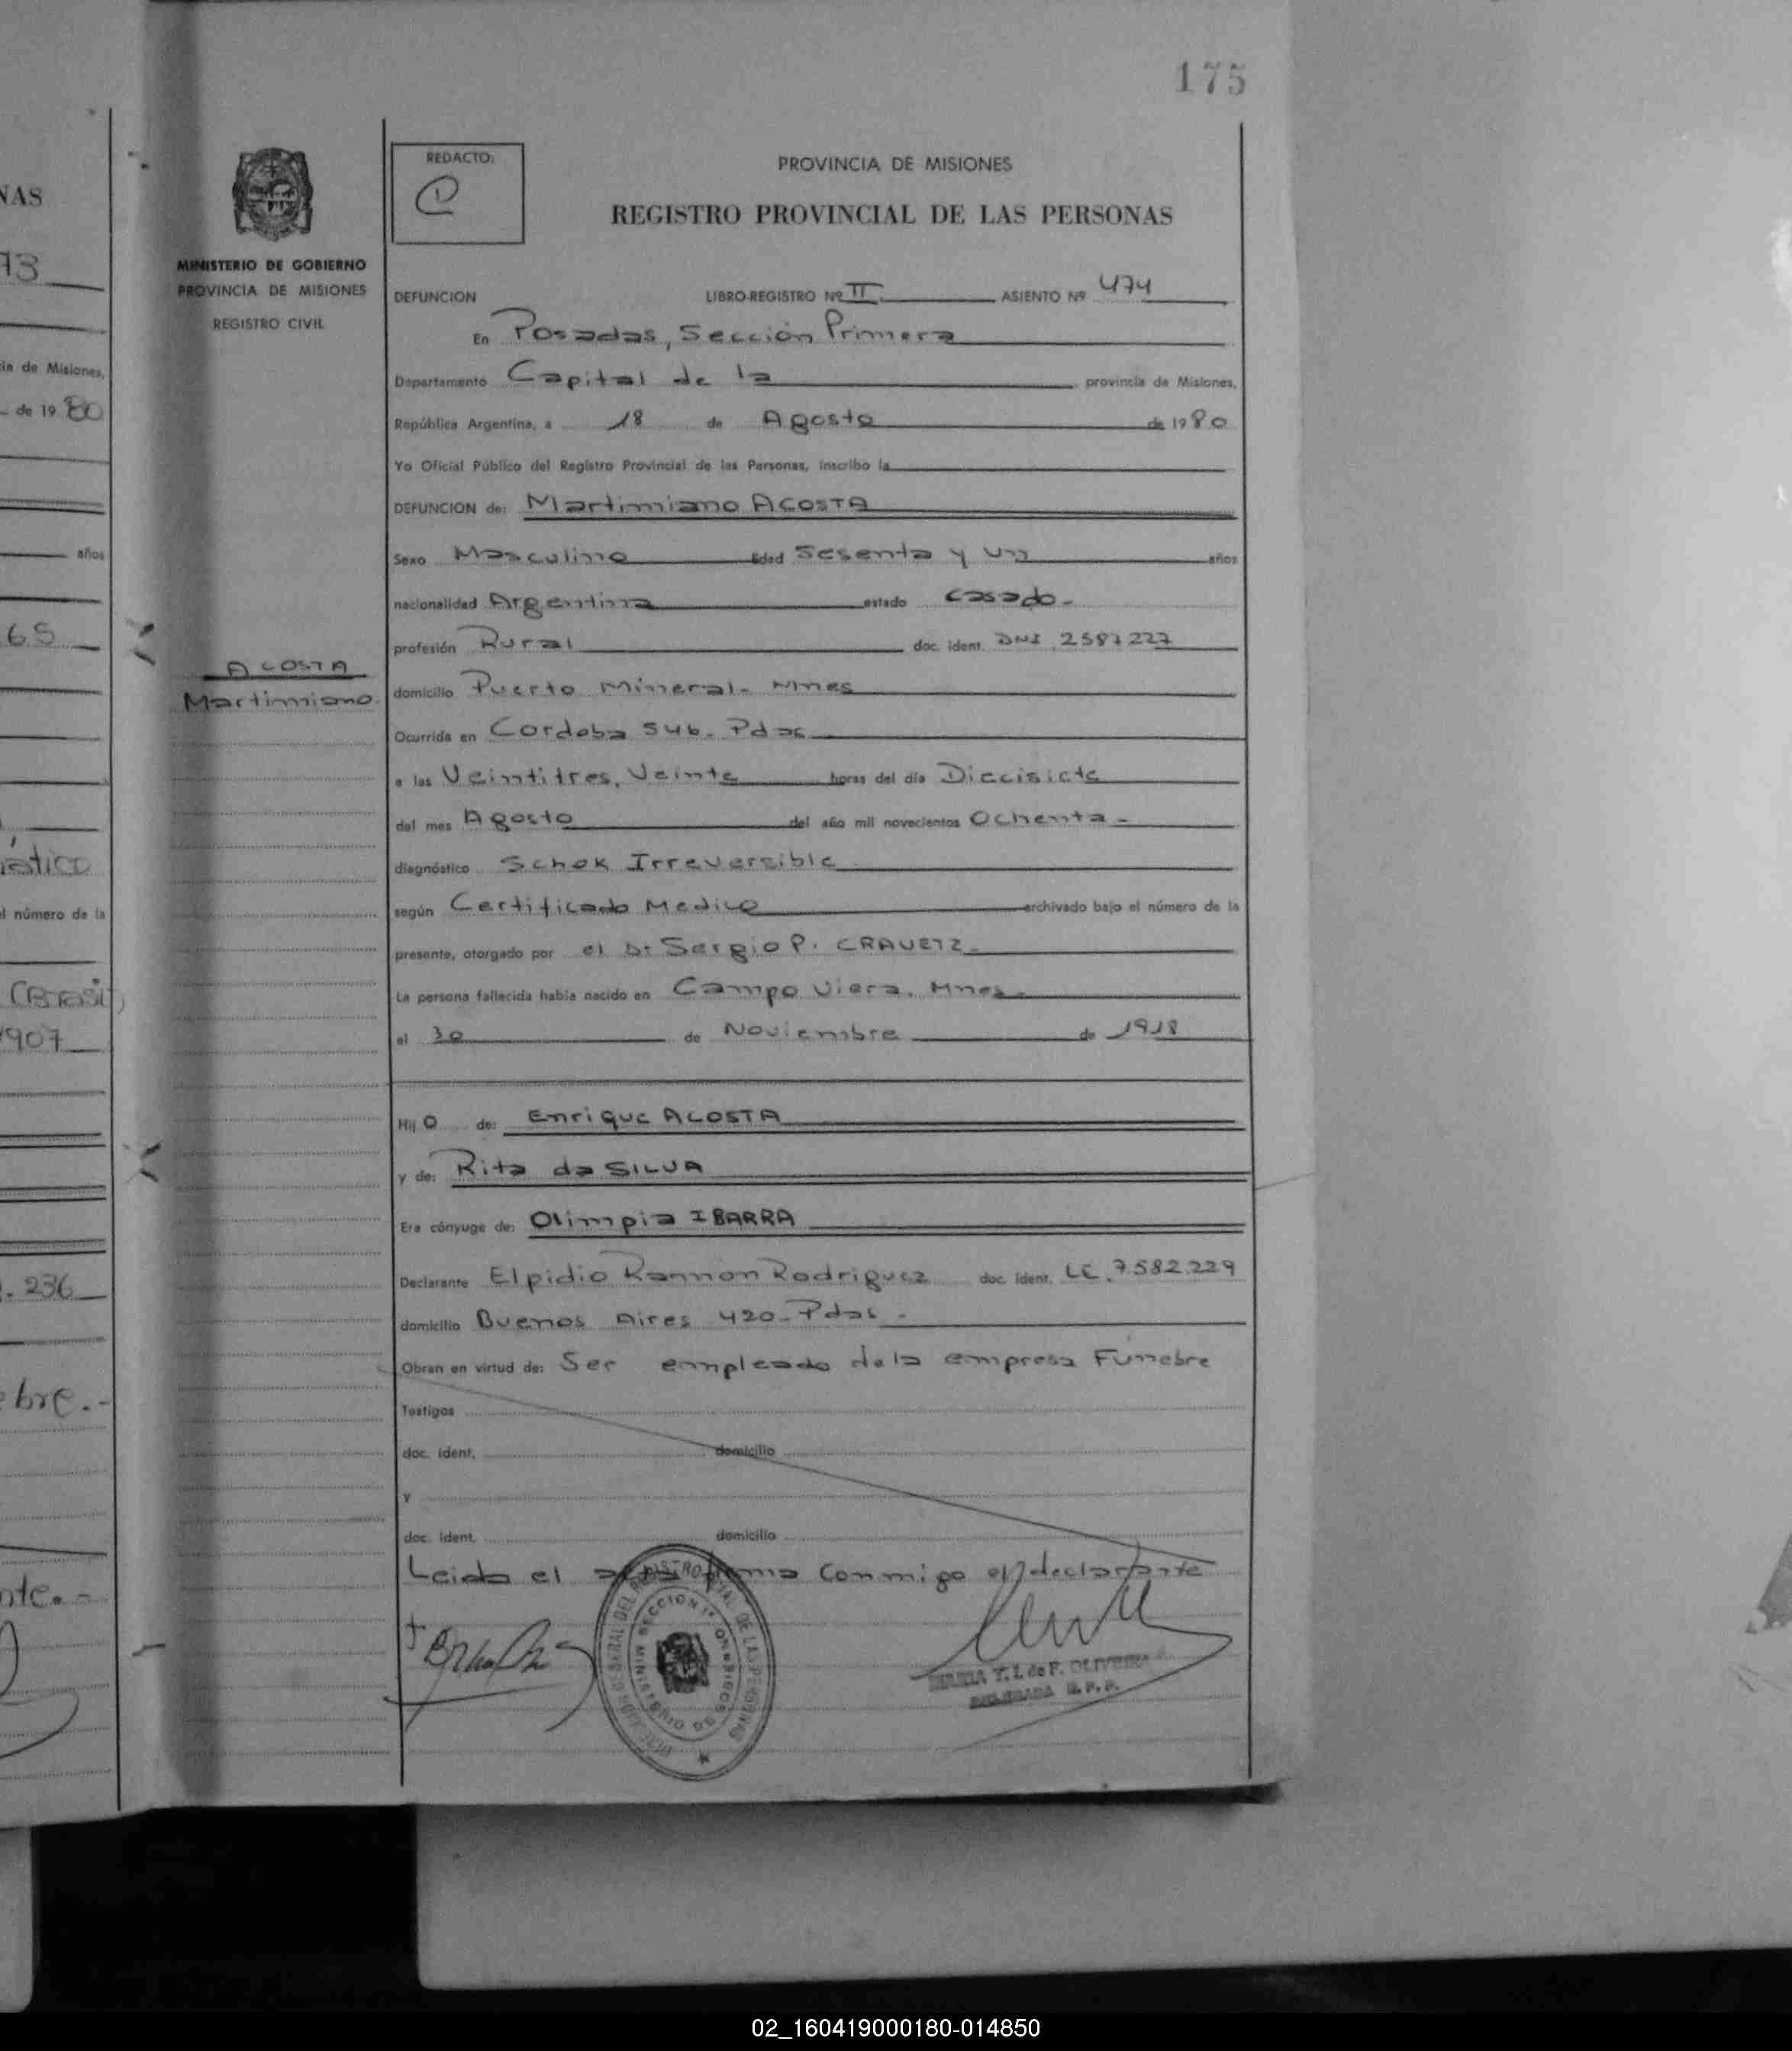 175
NAS
73
ia de Misiones,
de 1980
años
65
ático
l número de la
(Brasil)
1907
. 236
ebre.-
nte.-
MINISTERIO DE GOBIERNO
PROVINCIA DE MISIONES
REGISTRO CIVIL
ACOSTA
Martimiano.
REDACTO:
PROVINCIA DE MISIONES
REGISTRO PROVINCIAL DE LAS PERSONAS
DEFUNCION LIBRO-REGISTRO Nº II ASIENTO Nº 474
En Posadas, Sección Primera
Departamento Capital de la provincia de Misiones,
República Argentina, a 18 de Agosto de 1980
Yo Oficial Público del Registro Provincial de las Personas, inscribo la
DEFUNCION de: Martimiano ACOSTA
Sexo Masculino Edad Sesenta y un años
nacionalidad Argentina estado casado-
profesión Rural doc. ident. DNI. 2587227
domicilio Puerto Mineral- Mnes
Ocurrida en Cordoba 546- Pdas
a las Veintitres, Veinte horas del día Diecisiete
del mes Agosto del año mil novecientos Ochenta-
diagnóstico Schok Irreversible
según Certificado Medico archivado bajo el número de la
presente, otorgado por el Dr Sergio P. CRAVETZ-
La persona fallecida había nacido en Campo Viera. Mnes-
el 30 de Noviembre de 1918
Hij O de: Enrique ACOSTA
y de: Rita da SILVA
Era cónyuge de: Olimpia IBARRA
Declarante Elpidio Ramon Rodriguez doc. ident. LE. 7.582.229
domicilio Buenos Aires 420-Pdas-
Obran en virtud de: Ser empleado dela empresa Funebre
Testigos
doc. ident. domicilio
y
doc. ident. domicilio
Leida el acta firma conmigo el declarante
SECCION 1ª
MINISTERIO DE GOBIERNO
MARIA T. I. de F. OLIVEIRA
DELEGADA R. P. P.
02_160419000180-014850